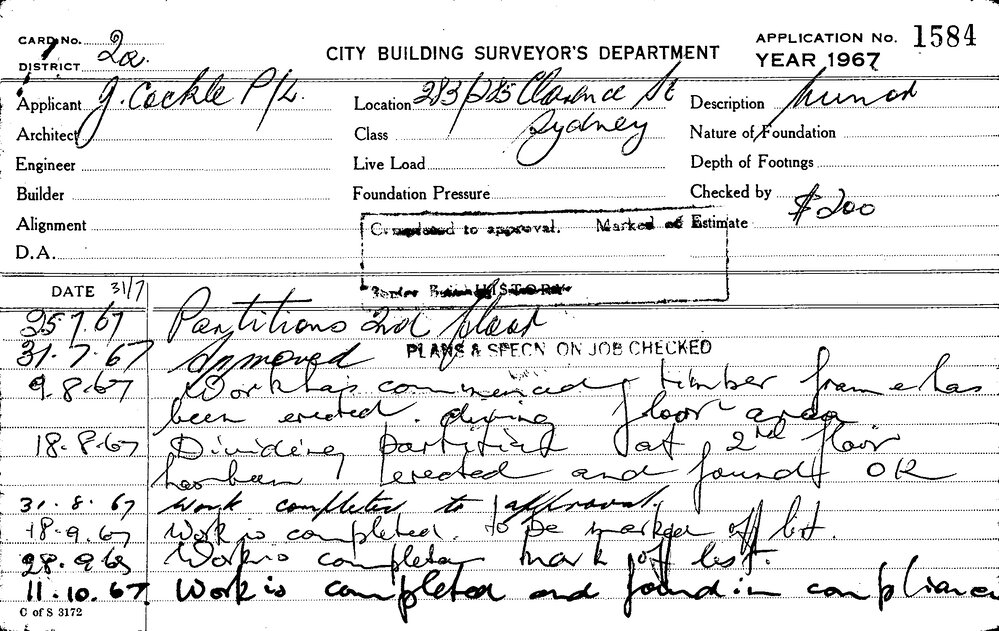 CARD No. 2a
DISTRICT
CITY BUILDING SURVEYOR'S DEPARTMENT
APPLICATION No. 1584
YEAR 1967
Applicant J. Cockle P/L.
Location 283/285 Clarence St
Sydney
Description
Architect
Class
Nature of Foundation
Engineer
Live Load
Depth of Footings
Builder
Foundation Pressure
Checked by
Alignment
Completed to approval. Marked off
Estimate $200
D.A.
HISTORY
DATE 31/7
25.7.67 Partitions 2nd floor
31.7.67 Approved PLANS & SPECN ON JOB CHECKED
9.8.67 Work has commenced timber frame has
been erected floor area
18.8.67 Dividing partition at 2nd floor
has been erected and found OK
31.8.67 Work completed to approval.
18.9.67 Work is completed. to be marked off list.
28.9.67 Work is completed mark off list.
11.10.67 Work is completed and found in compliance
C of S 3172